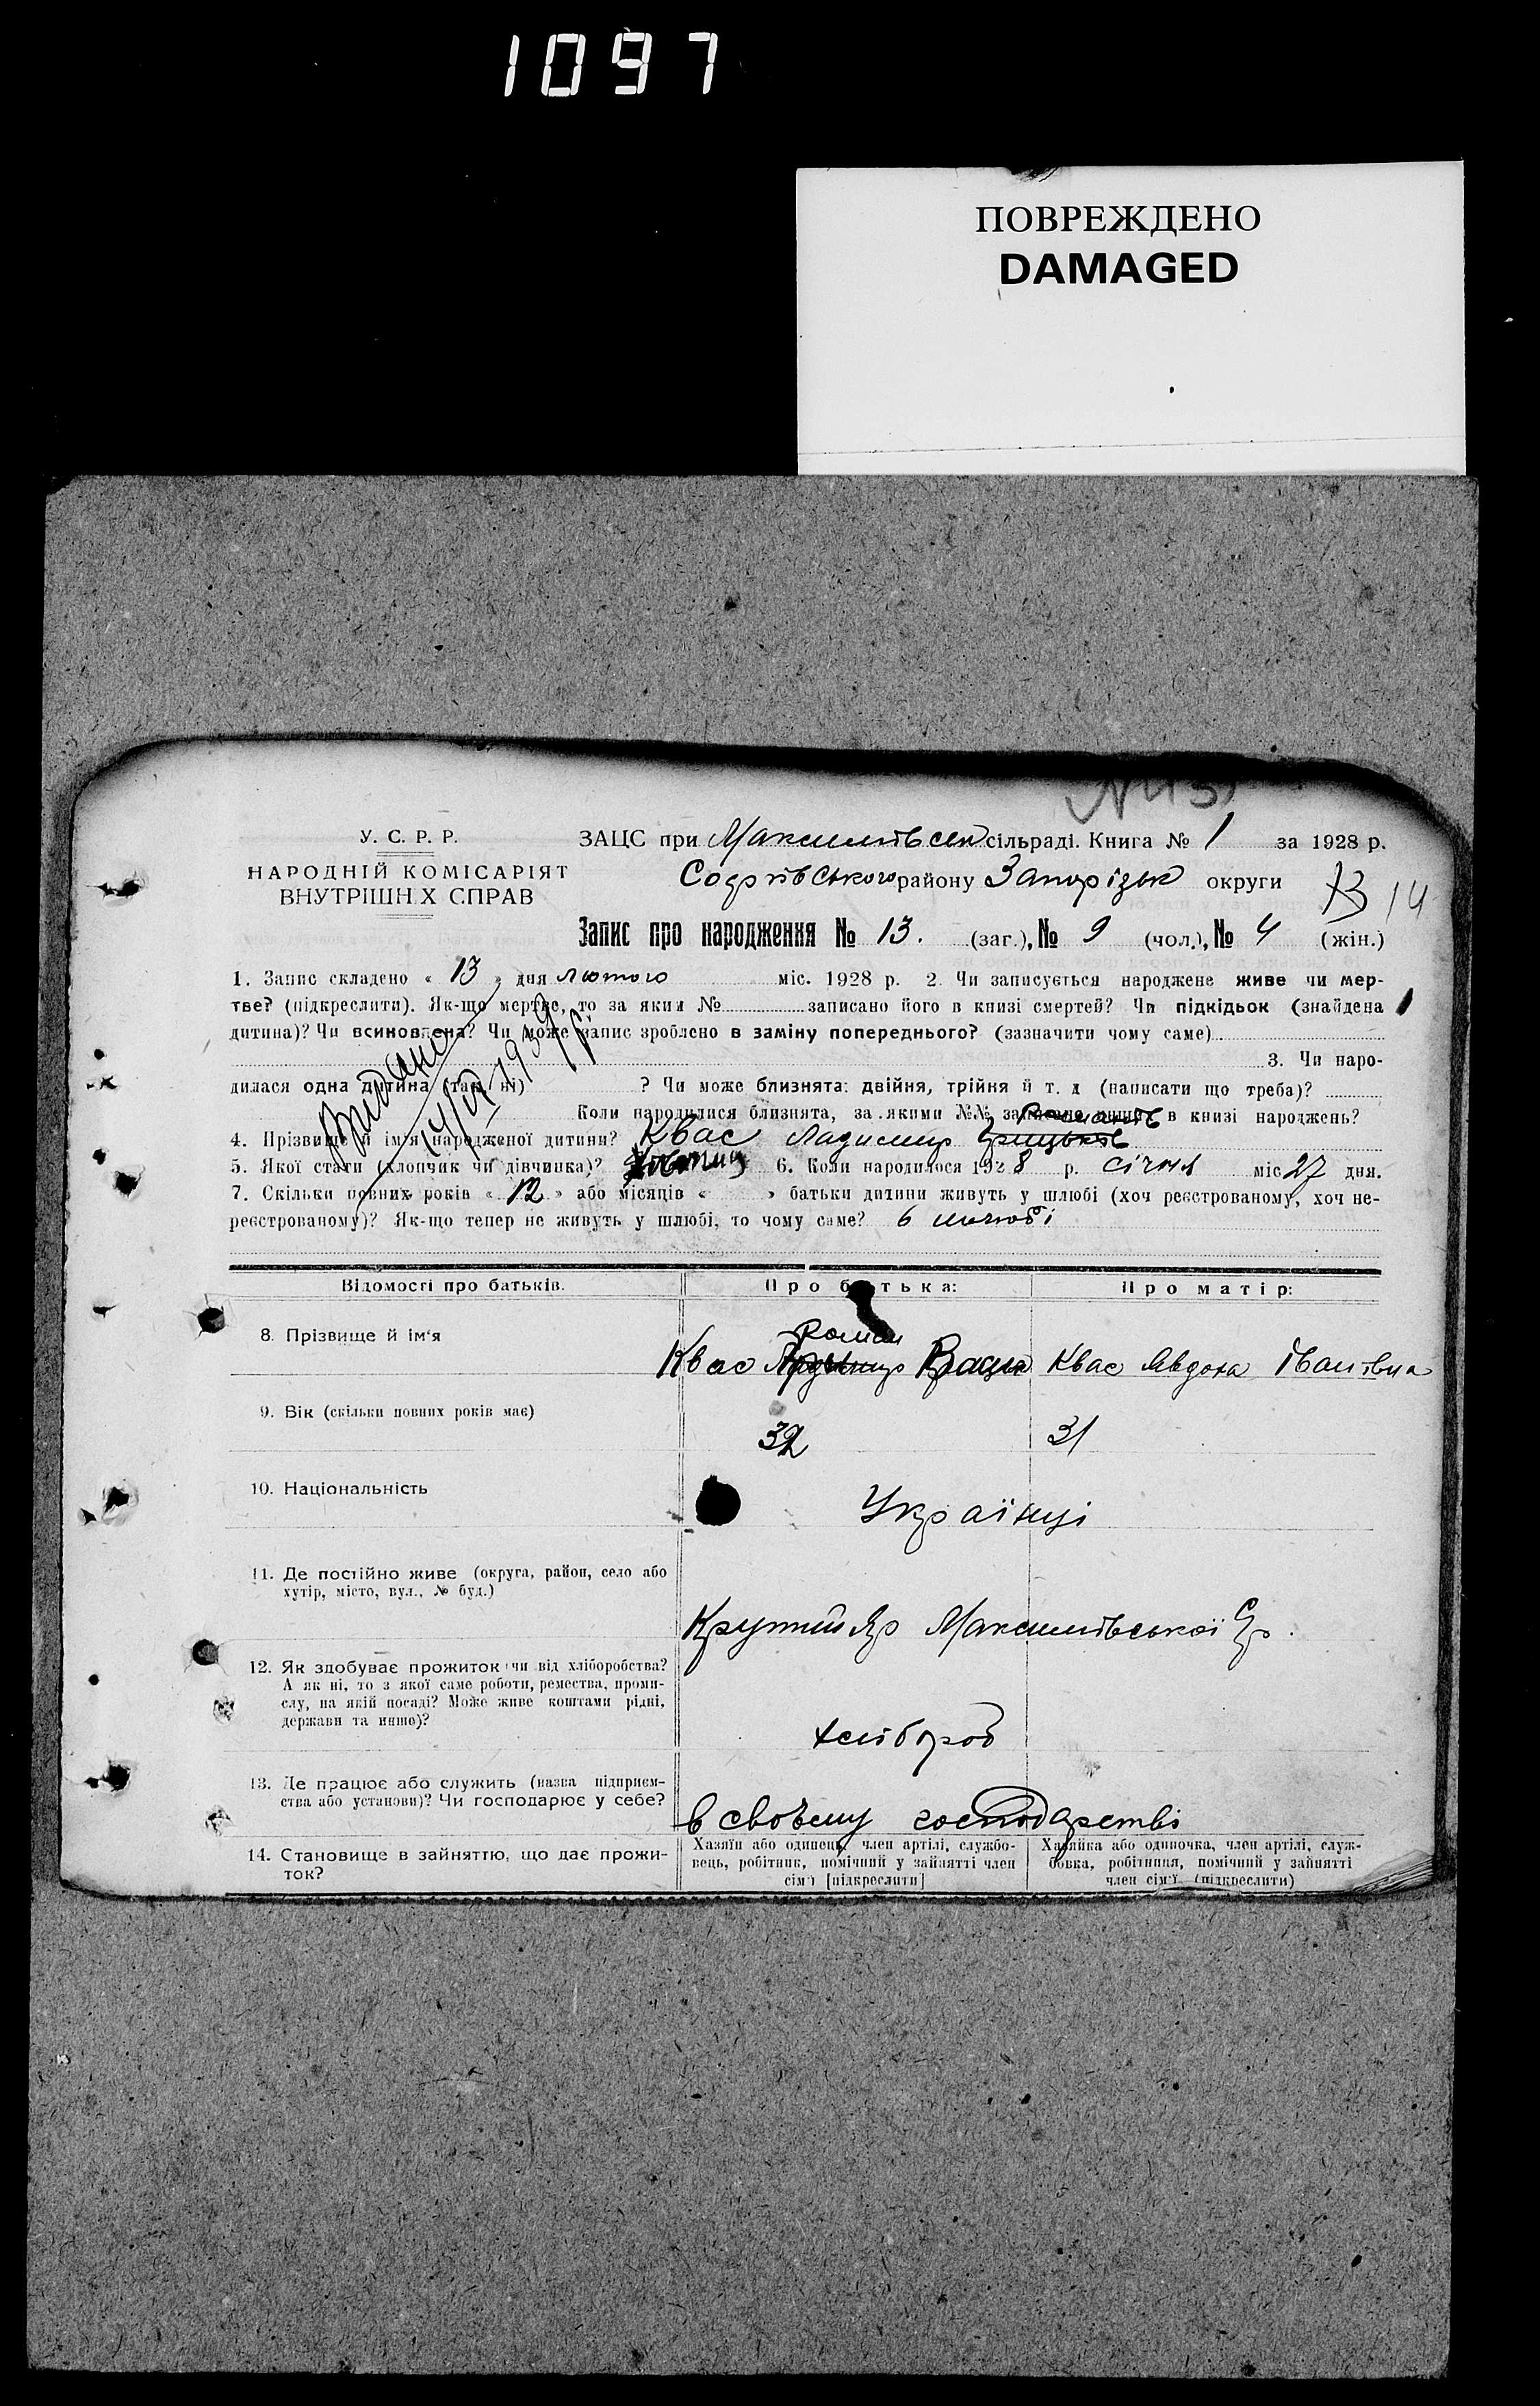 1097
ПОВРЕЖДЕНО
DAMAGED
У. С. Р. Р.
НАРОДНІЙ КОМІСАРІЯТ
ВНУТРІШН Х СПРАВ
ЗАЦС при сільраді. Книга № 1 за 1928 р.
району Запорізьк округи
14
Запис про народження № 13. (заг.), № 9 (чол.), № 4 (жін.)
1. Запис складено « 13 » дня лютого міс. 1928 р. 2. Чи записується народжене живе чи мер-
тве? (підкреслити). Як-що мертве, то за яким № записано його в книзі смертей? Чи підкідьок (знайдена
дитина)? Чи всиновлена? Чи може запис зроблено в заміну попереднього? (зазначити чому саме)
3. Чи наро-
дилася одна дитина (так, ні) ? Чи може близнята: двійня, трійня й т. д (написати що треба)?
Коли народилися близнята, за якими №№ в книзі народжень?
Видано
1939 р.
4. Прізвище й ім'я народженої дитини? Квас
5. Якої стати (хлопчик чи дівчинка)? 6. Коли народилося 1928 р. січня міс 27 дня.
7. Скільки повних років « 12 » або місяців « » батьки дитини живуть у шлюбі (хоч реєстрованому, хоч не-
реєстрованому)? Як-що тепер не живуть у шлюбі, то чому саме? в шлюбі
Відомості про батьків. Про батька: Про матір:
Роман
8. Прізвище й ім'я Квас Квас Явдоха Іванівна
9. Вік (скільки повних років має) 32 31
10. Національність Українці
11. Де постійно живе (округа, район, село або
хутір, місто, вул., № буд.)
Крутий Яр Максимівської
12. Як здобуває прожиток чи від хліборобства?
А як ні, то з якої саме роботи, ремества, проми-
слу, на якій посаді? Може живе коштами рідні,
держави та инше)?
хлібороб
13. Де працює або служить (назва підприєм-
ства або установи)? Чи господарює у себе?
в своєму господарстві
14. Становище в зайняттю, що дає прожи-
ток?
Хазяїн або одинець, член артілі, службо-
вець, робітник, помічний у зайнятті член
сім'ї [підкреслити]
Хазяйка або одиночка, член артілі, служ-
бовка, робітниця, помічний у зайнятті
член сім'ї (підкреслити)